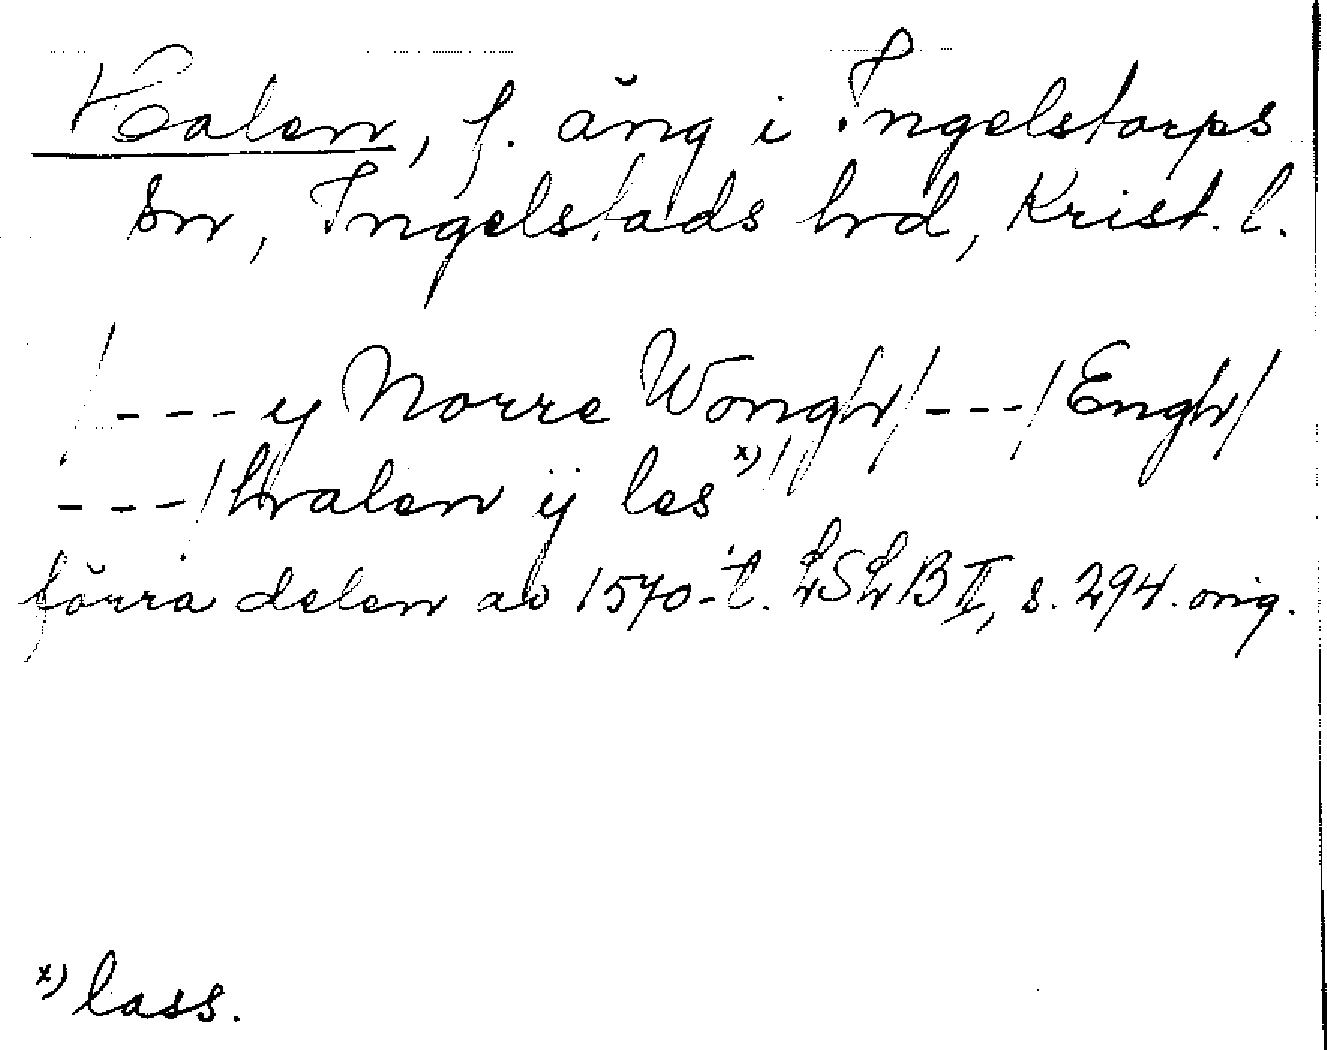 Halen, f. äng i Ingelstorps
sn, Ingelstads hrd, Krist. l.
/--- y Norre Wongh/---/Engh/
---/halen ij les x)/
förra delen av 1570-t. LSLB II, s. 294. orig.
x) lass.